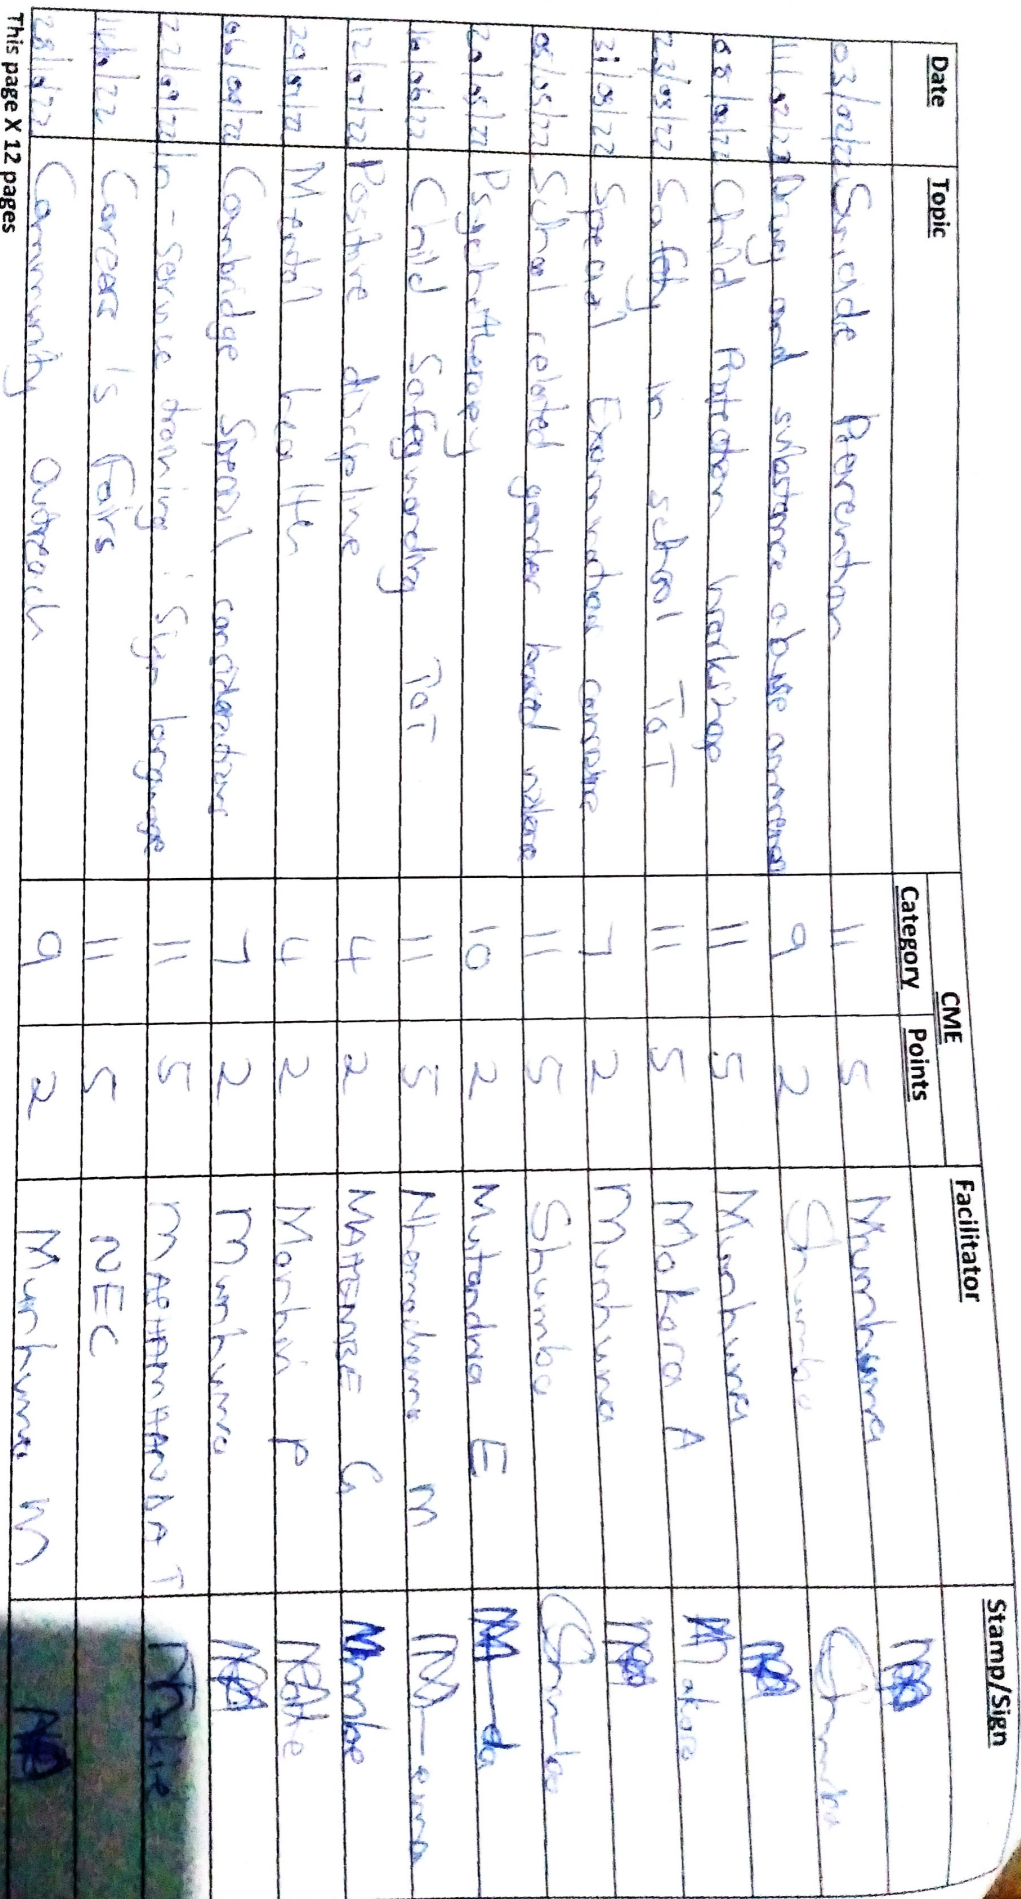 CME
Date Topic Category Points Facilitator Stamp/Sign
03/02/22 Suicide Prevention 11 5 Munhuma
11/02/22 Drug and substance abuse awareness 9 2 Shumba
Child Protection Workshop 11 5 Munhuma
23/03/22 Safety in school ToT 11 5 Makora A Makora
31/03/22 Special Examination concessione 7 2 Munhuma
05/05/22 School related gender based violence 11 5 Shumba
20/05/22 Psychotherapy 10 2 Mutandwa E
16/06/22 Child Safeguarding ToT 11 5 Nhamachena M
12/07/22 Positive discipline 4 2 MATEMBE G
20/07/22 Mental health 4 2 Manhivi P
Cambridge Special considerations 7 2 Munhuma
22/09/22 In-service training : Sign language 11 5 MAPHAMHANDA T
Careers is Fairs 11 5 NEC
Community Outreach 9 2 Munhuma M
This page X 12 pages